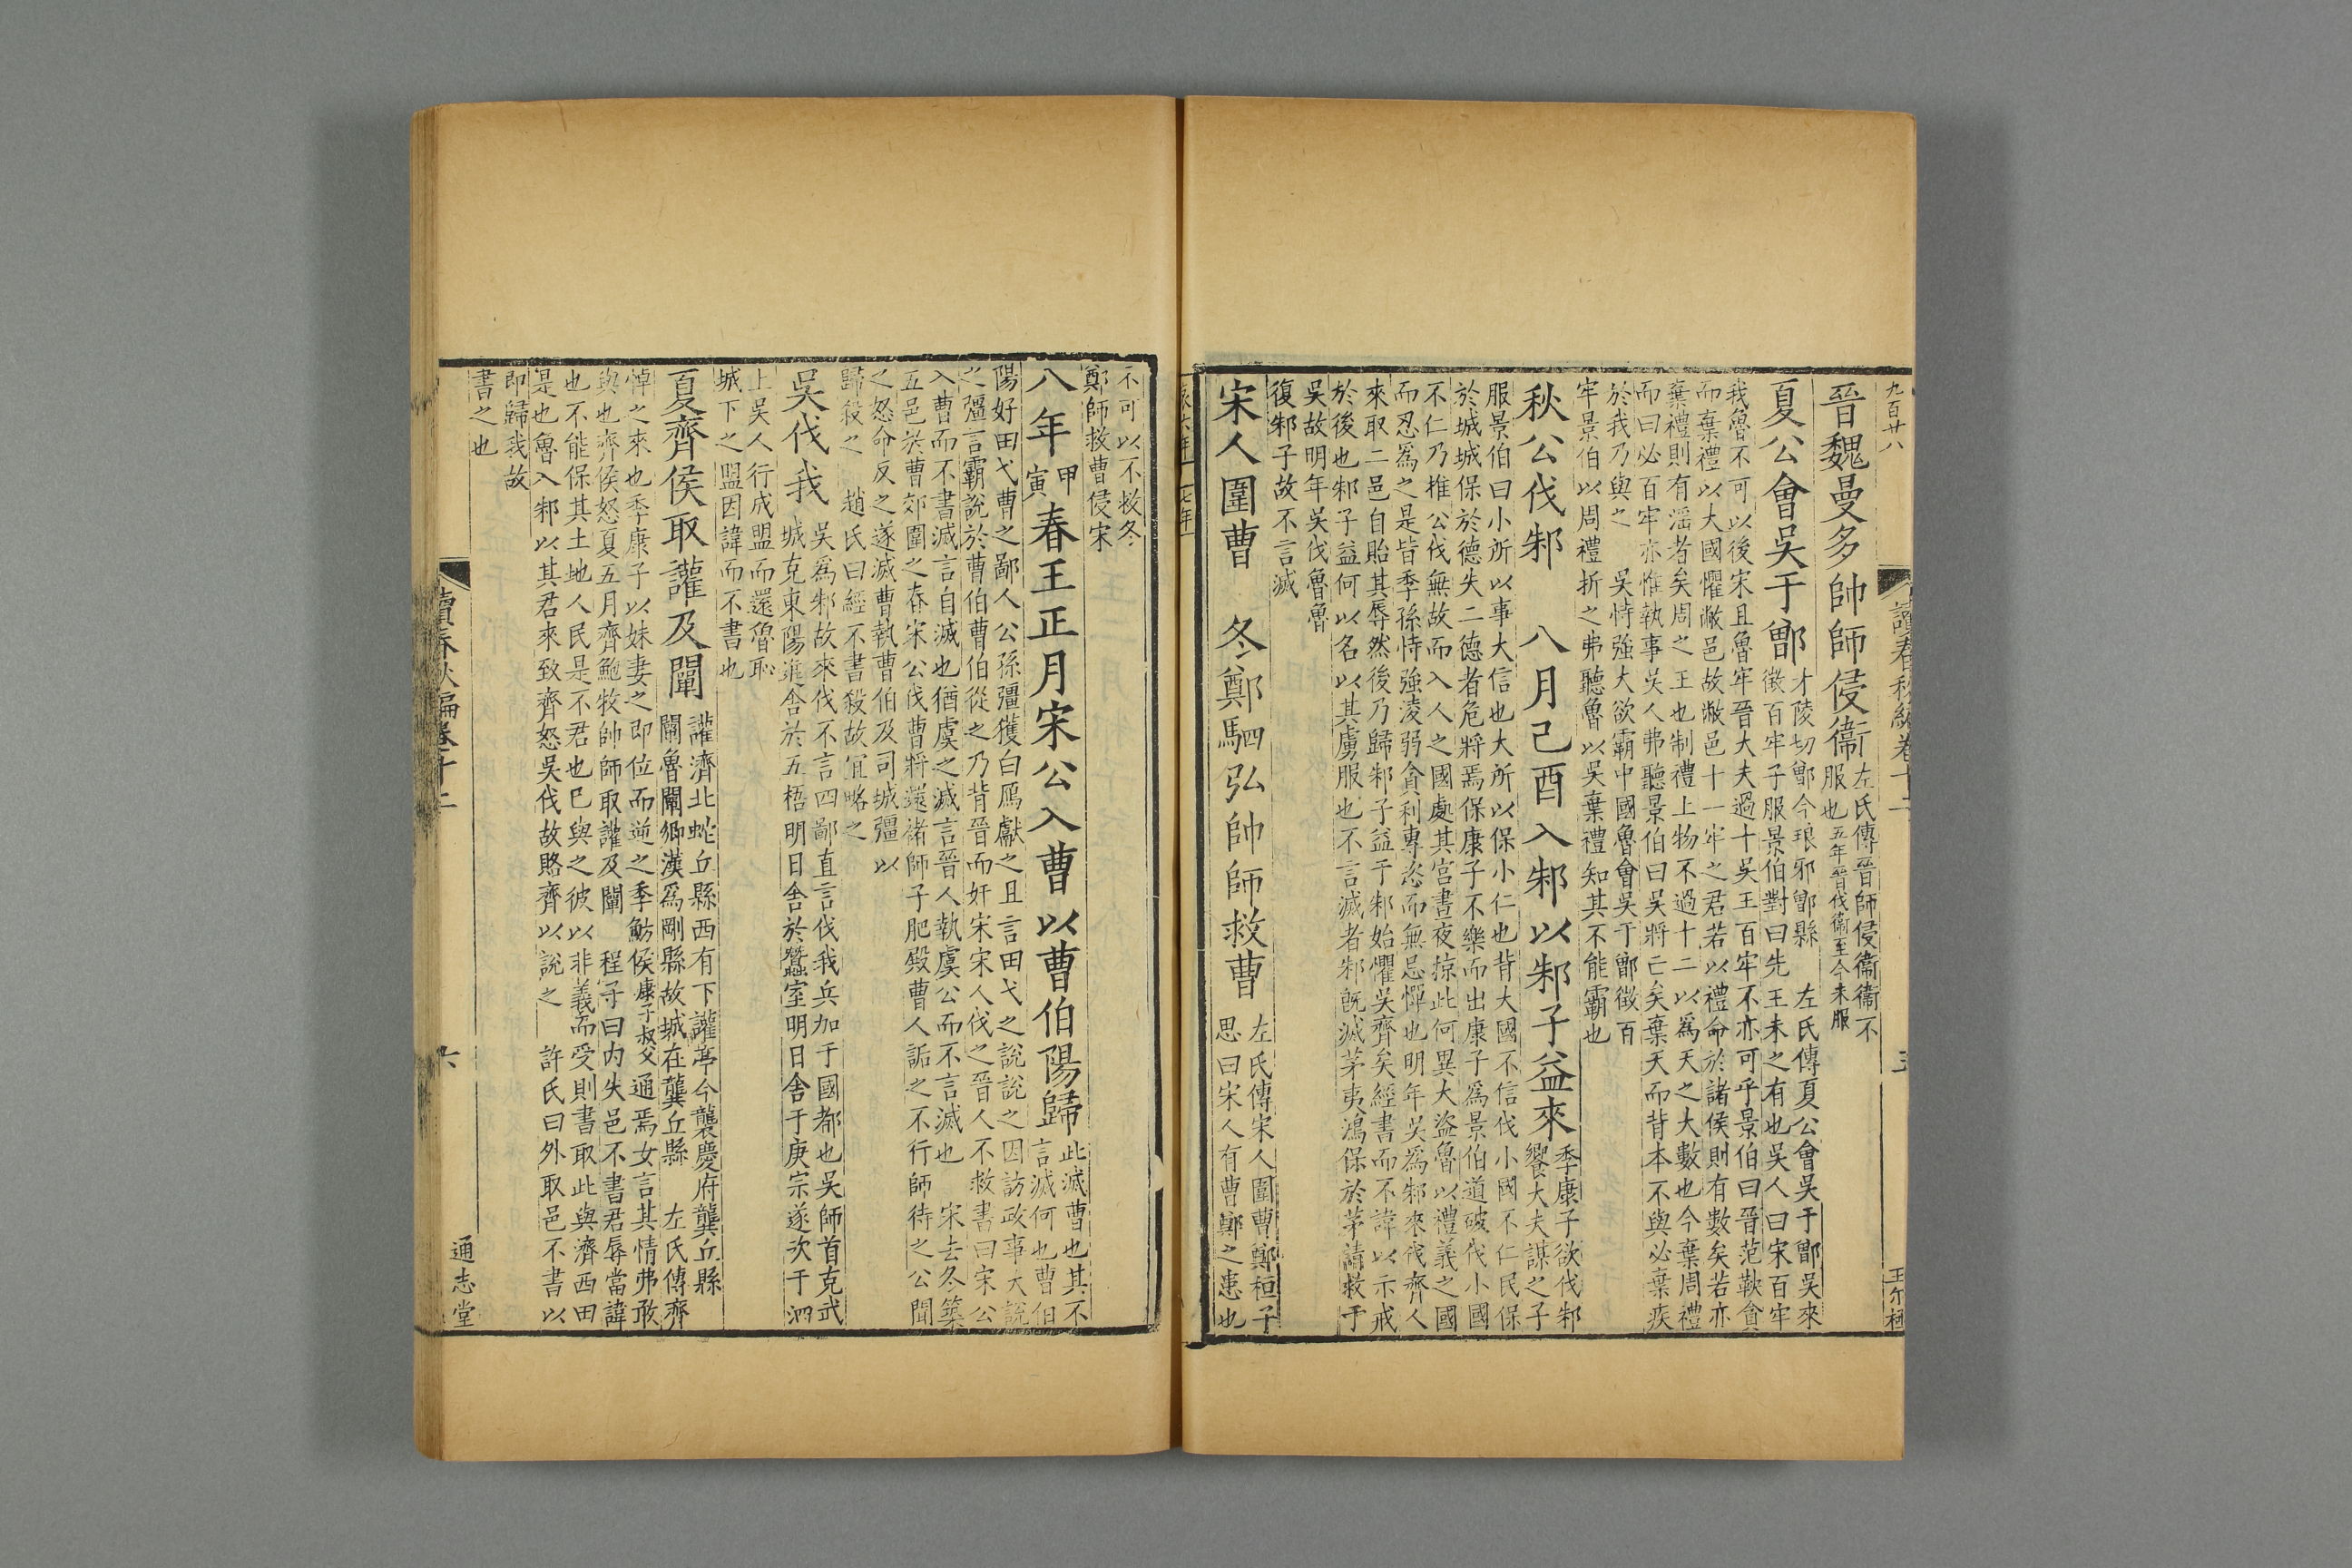 九百廿八
讀春秋編卷十二
五
王尔極
晉魏曼多帥師侵衞
左氏傳晉師侵衞衞不
服也五年晉伐衞至今未服
夏公會吳于鄫
才陵切鄫今琅邪鄫縣 左氏傳夏公會吳于鄫吳來
徵百牢子服景伯對曰先王未之有也吳人曰宋百牢
我魯不可以後宋且魯牢晉大夫過十吳王百牢不亦可乎景伯曰晉范鞅貪
而棄禮以大國懼敝邑故敝邑十一牢之君若以禮命於諸侯則有數矣若亦
棄禮則有淫者矣周之王也制禮上物不過十二以爲天之大數也今棄周禮
而曰必百牢亦惟執事吳人弗聽景伯曰吳將亡矣棄天而背本不與必棄疾
於我乃與之 吳恃強大欲霸中國魯會吳于鄫徵百
牢景伯以周禮折之弗聽魯以吳棄禮知其不能霸也
秋公伐邾 八月己酉入邾以邾子益來
季康子欲伐邾
饗大夫謀之子
服景伯曰小所以事大信也大所以保小仁也背大國不信伐小國不仁民保
於城城保於德失二德者危將焉保康子不樂而出康子爲景伯道破伐小國
不仁乃推公伐無故而入人之國處其宮晝夜掠此何異大盜魯以禮義之國
而忍爲之是皆季孫恃強淩弱貪利專恣而無忌憚也明年吳爲邾來伐齊人
來取二邑自貽其辱然後乃歸邾子益于邾始懼吳齊矣經書而不諱以示戒
於後也邾子益何以名以其虜服也不言滅者邾旣滅茅夷鴻保於茅請救于
吳故明年吳伐魯魯
復邾子故不言滅
宋人圍曹 冬鄭駟弘帥師救曹
左氏傳宋人圍曹鄭桓子
思曰宋人有曹鄭之患也
不可以不救冬
鄭師救曹侵宋
八年甲寅春王正月宋公入曹以曹伯陽歸
此滅曹也其不
言滅何也曹伯
陽好田弋曹之鄙人公孫彊獲白鴈獻之且言田弋之說說之因訪政事大說
之彊言霸說於曹伯曹伯從之乃背晉而奸宋宋人伐之晉人不救書曰宋公
入曹而不書滅言自滅也猶虞之滅言晉人執虞公而不言滅也 宋去冬築
五邑於曹郊圍之春宋公伐曹將還褚師子肥殿曹人詬之不行師待之公聞
之怒命反之遂滅曹執曹伯及司城彊以
歸殺之 趙氏曰經不書殺故宜略之
吳伐我
吳爲邾故來伐不言四鄙直言伐我兵加于國都也吳師首克武
城克東陽進舍於五梧明日舍於蠶室明日舍于庚宗遂次于泗
上吳人行成盟而還魯恥
城下之盟因諱而不書也
夏齊侯取讙及闡
讙濟北蛇丘縣西有下讙亭今襲慶府龔丘縣
闡魯闡鄉漢爲剛縣故城在龔丘縣 左氏傳齊
悼之來也季康子以妹妻之即位而逆之季魴侯康子叔父通焉女言其情弗敢
與也齊侯怒夏五月齊鮑牧帥師取讙及闡 程子曰内失邑不書君辱當諱
也不能保其土地人民是不君也已與之彼以非義而受則書取此與濟西田
是也魯入邾以其君來致齊怒吳伐故賂齊以說之 許氏曰外取邑不書以
即歸我故
書之也
讀春秋編卷十二
六
通志堂